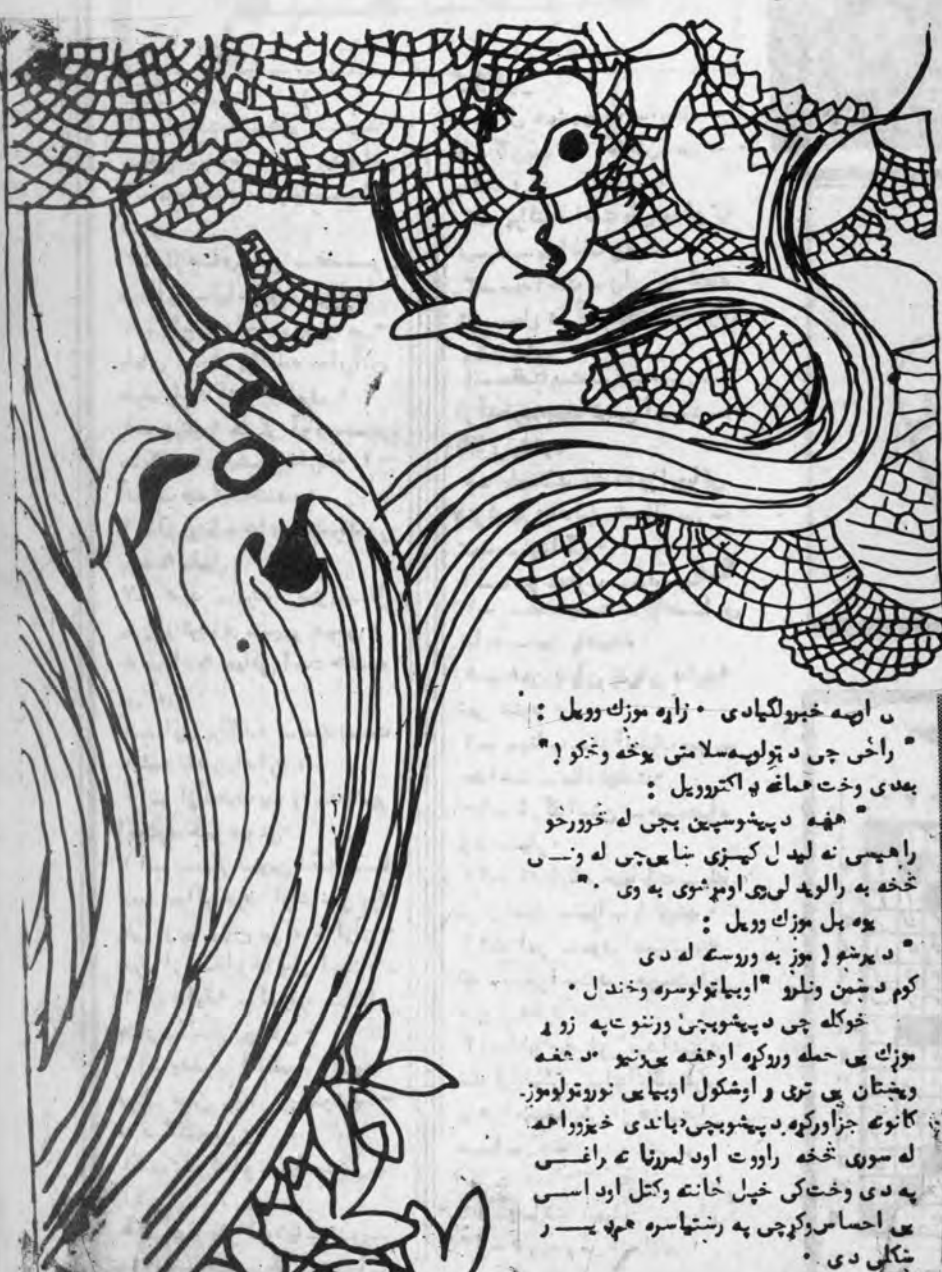 د اوبه خبرولگیادی • زاړه موزك وویل :
" راځی چی د ټولو په سلامتی یوڅه وڅکو ! "
بعدی وخت هماغه ډاکتروویل :
" هغه د پیشوسپین بچی له څوورځو
راهیسی نه لیدل کیـزی ښایی چی له ونـــی
څخه به رالویدلی وی اومړشوی به وی • "
یوه بل موزك وویل :
" ډیرښه ! موز به وروسته له دی
کوم دښمن ونلرو " اوبیا ټولوسره وخندل •
خوکله چی د پیشوبچی ورننوت په زوړ
موزك یی حمله وروکړه اوهغه یی ونیو • د هغه
ویښتان یی تری راوشکول اوبیا یی نوروټولوموز-
کانوته جزاورکړه. د پیشوبچی دباندی خیزوواهه
له سوری څخه راووت اود لمررڼا ته راغـــی
په دی وخت کی خپل ځانته وکتل اود اســی
یی احساس وکړچی په رښتیاسره هم ډیـــر
ښکلی دی •